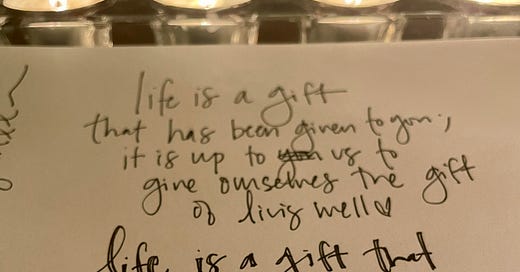 life is a gift
that has been given to you;
it is up to us to
give ourselves the gift
of livig well
life is a gift that